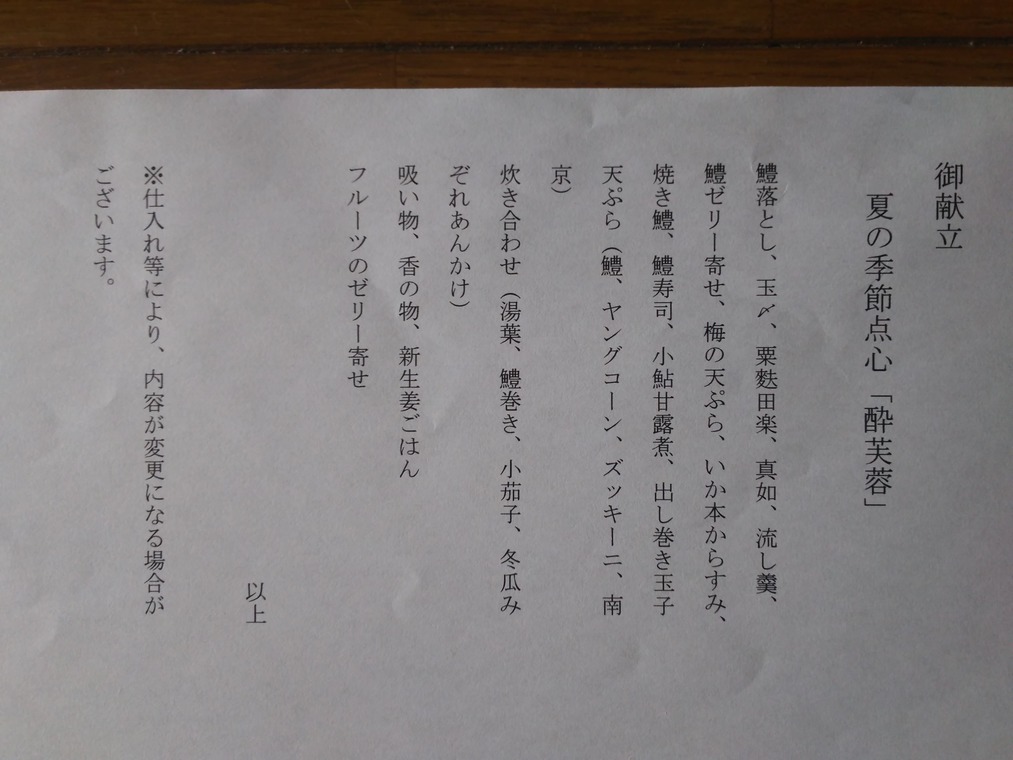 御献立
夏の季節点心「酔芙蓉」
鱧落とし、玉〆、粟麩田楽、真如、流し羹、
鱧ゼリー寄せ、梅の天ぷら、いか本からすみ、
焼き鱧、鱧寿司、小鮎甘露煮、出し巻き玉子
天ぷら（鱧、ヤングコーン、ズッキーニ、南
京）
炊き合わせ（湯葉、鱧巻き、小茄子、冬瓜み
ぞれあんかけ）
吸い物、香の物、新生姜ごはん
フルーツのゼリー寄せ
以上
※仕入れ等により、内容が変更になる場合が
ございます。